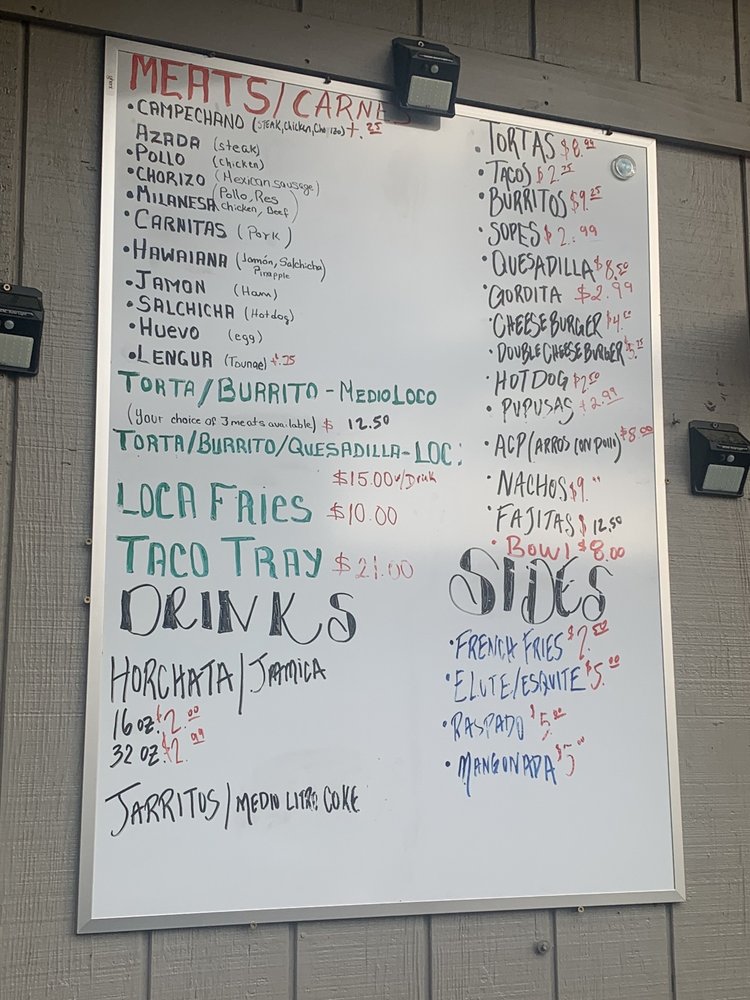 MEATS/CARNES
•CAMPECHANO (STEAK, Chicken, Chorizo) +.25
AZADA (steak)
•POLLO (chicken)
•CHORIZO (Mexican sausage)
•MILANESA (Pollo, Res
chicken, Beef)
•CARNITAS (Pork)
•HAWAIANA (Jamón, Salchicha
Pinapple)
•JAMON (Ham)
•SALCHICHA (Hotdog)
•HUEVO (egg)
•LENGUA (Tounge)
TORTA/BURRITO - MEDIO LOCO
(Your choice of 3 meats available) $ 12.50
TORTA/BURRITO/QUESADILLA-LOC
$15.00 w/Drink
LOCA FRIES $10.00
TACO TRAY $21.00
DRINKS
HORCHATA/JAMICA
16 oz. $2.00
32 oz. $2.99
JARRITOS/MEDIO LITRO COKE
•TORTAS $8.99
•TACOS $2.25
•BURRITOS $9.25
•SOPES $2.99
•QUESADILLA $8.50
•GORDITA $2.99
•CHEESEBURGER
•DOUBLE CHEESEBURGER
•HOTDOG $2.50
•PUPUSAS $2.99
•ACP (ARROS CON POLLO) $8.00
•NACHOS $9.
•FAJITAS $12.50
•BOWL $8.00
SIDES
•FRENCH FRIES
•ELOTE/ESQUITE $5.00
•RASPADO $5.00
•MANGONADA $5.00